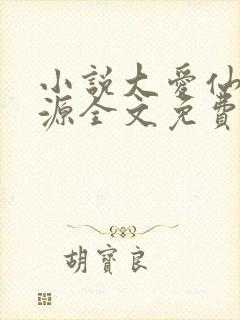 小說大愛仙
源全文免費
胡寶良